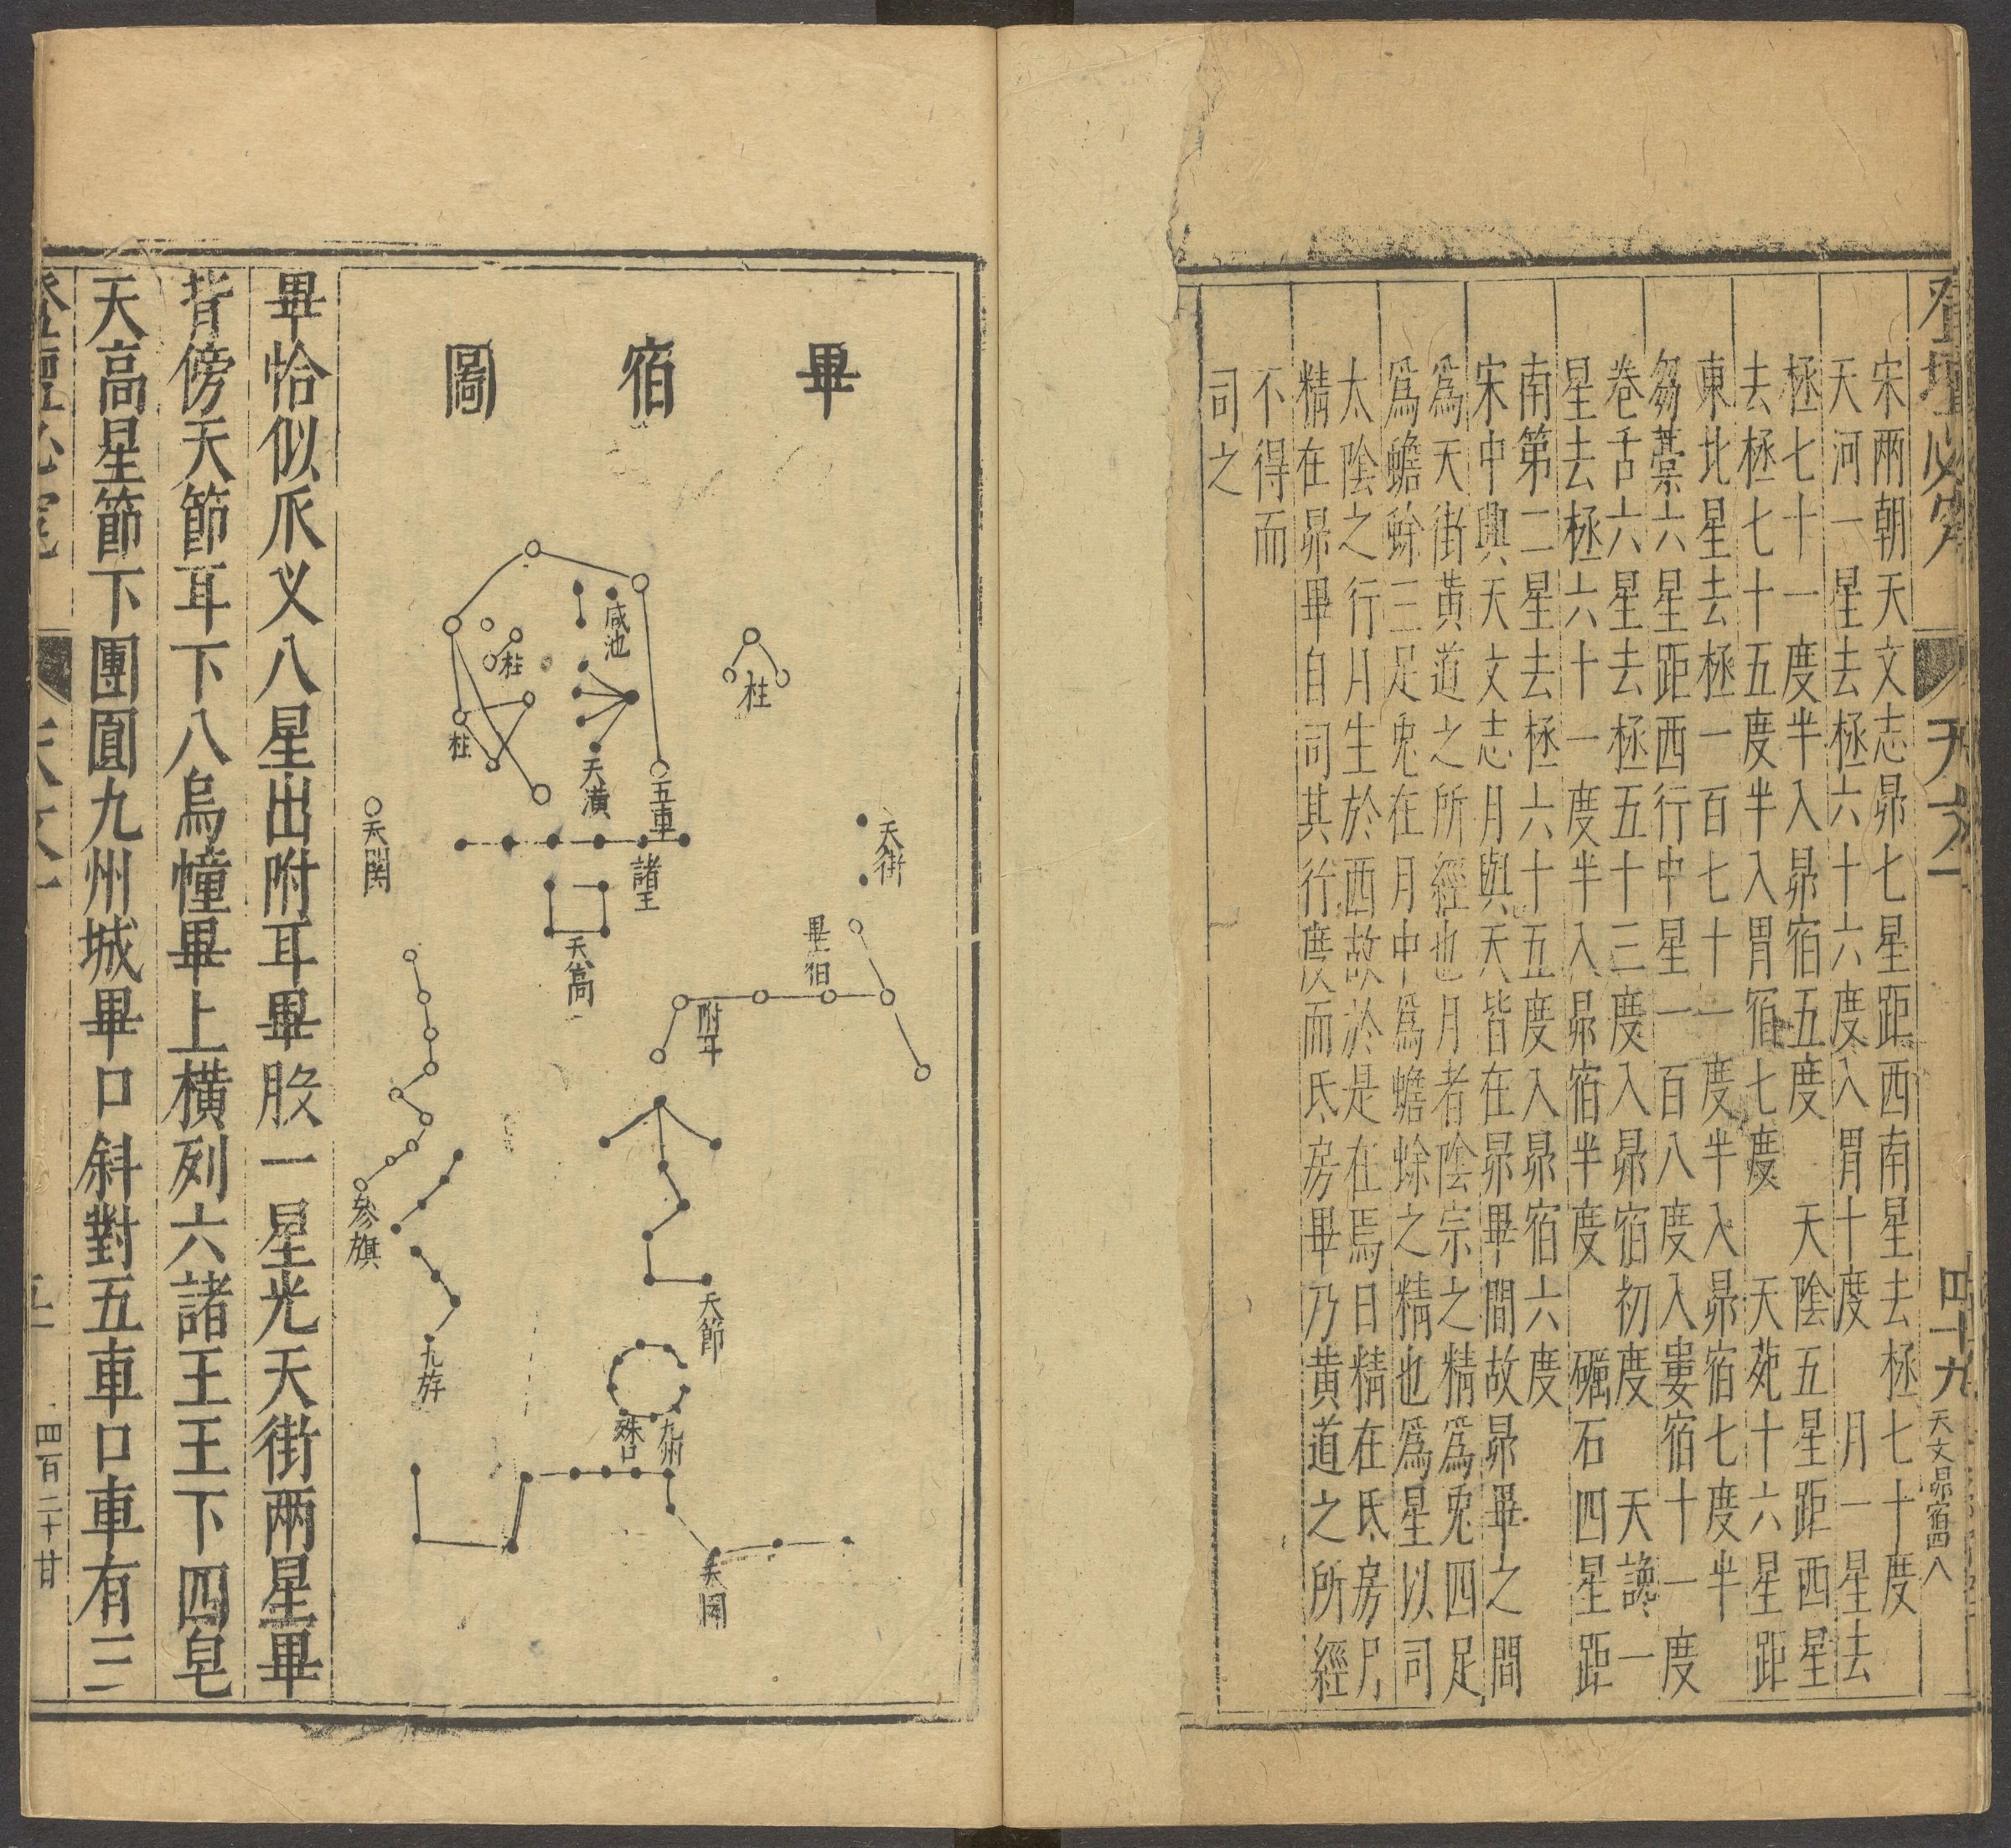 登壇必究
天文一
四十九
天文昴宿四八
宋兩朝天文志昴七星距西南星去極七十度
天河一星去極六十六度入胃十度 月一星去
極七十一度半入昴宿五度 天陰五星距西星
去極七十五度半入胃宿七度 天苑十六星距
東北星去極一百七十一度半入昴宿七度半
芻藁六星距西行中星一百八度入婁宿十一度
卷舌六星去極五十三度入昴宿初度 天讒一
星去極六十一度半入昴宿半度 礪石四星距
南第二星去極六十五度入昴宿六度
宋中興天文志月與天皆在昴畢間故昴畢之間
爲天街黃道之所經也月者陰宗之精爲兎四足
爲蟾蜍三足兎在月中爲蟾蜍之精也爲星以司
太陰之行月生於西故於是在焉日精在氐房月
精在昴畢自司其行度而氐房畢乃黃道之所經
不得而
司之
畢宿圖
咸池
柱
柱
柱
天潢
五車
諸王
天街
天関
天高
畢宿
附耳
參旗
天節
九斿
九州
殊口
天園
畢恰似爪义八星出附耳畢股一星光天街兩星畢
背傍天節耳下八烏幢畢上橫列六諸王王下四皂
天高星節下團圓九州城畢口斜對五車口車有三
登壇必究
天文一
四百二十廿